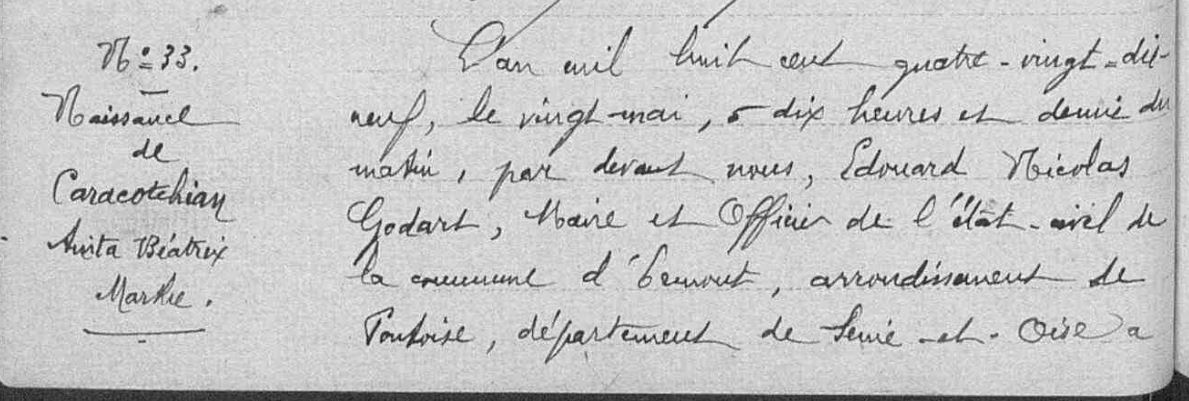 N° 33.
Naissance
de
Caracotchian
Anita Béatrix
Marthe.
L'an mil huit cent quatre-vingt-dix-
neuf, le vingt-mai, à dix heures et demie du
matin, par devant nous, Edouard Nicolas
Godart, Maire et Officier de l'état-civil de
la commune d'Ermont, arrondissement de
Pontoise, département de Seine-et-Oise a